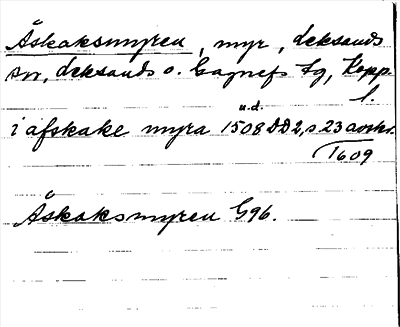 Åskaksmyren, myr, Leksands
sn, Leksands o. Gagnefs tg, Kopp.
l.
u.d.
i afskake myra 1508 DD2, s. 23 avskr.
1609
Åskaksmyren G96.